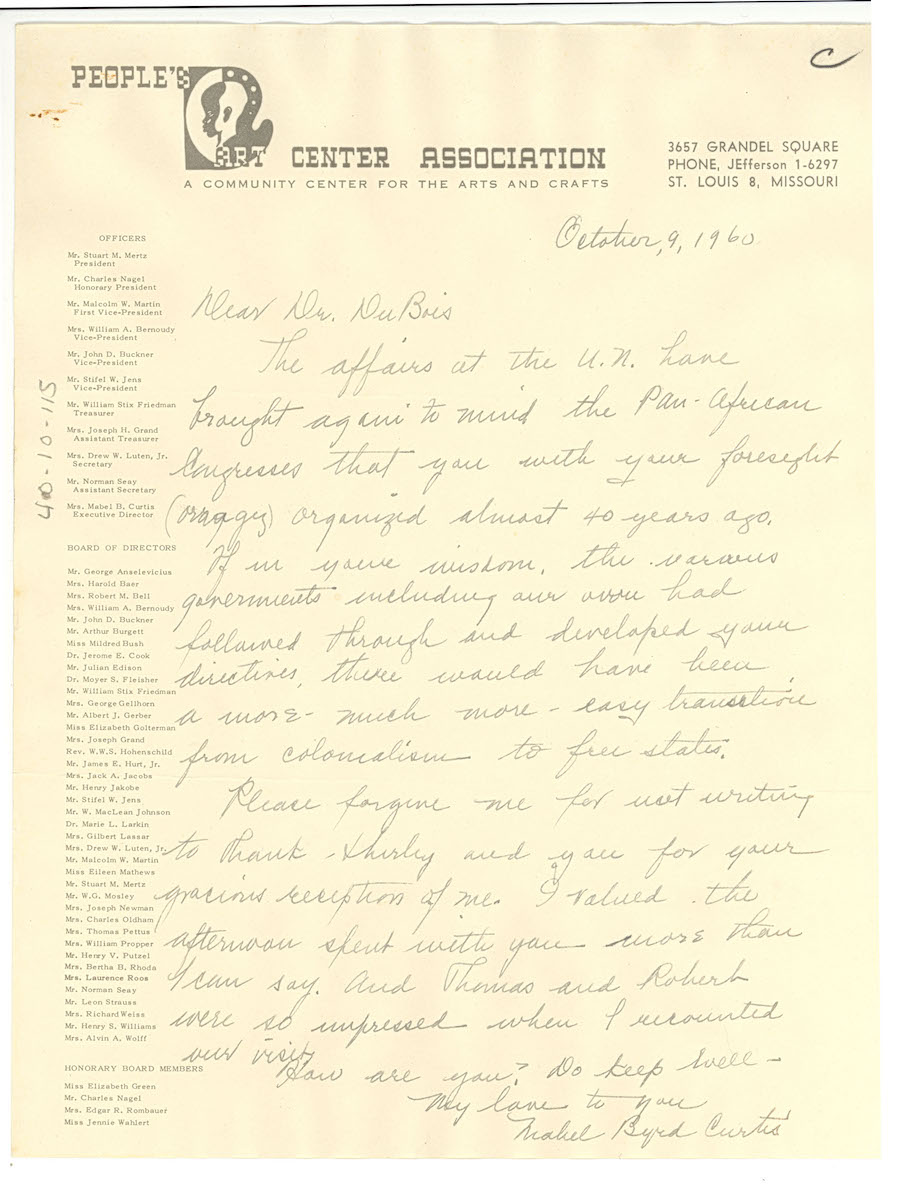 C
PEOPLE'S
ART CENTER ASSOCIATION
A COMMUNITY CENTER FOR THE ARTS AND CRAFTS
3657 GRANDEL SQUARE
PHONE, JEfferson 1-6297
ST. LOUIS 8, MISSOURI
October, 9, 1960
OFFICERS
Mr. Stuart M. Mertz
President
Mr. Charles Nagel
Honorary President
Mr. Malcolm W. Martin
First Vice-President
Mrs. William A. Bernoudy
Vice-President
Mr. John D. Buckner
Vice-President
Mr. Stifel W. Jens
Vice-President
Mr. William Stix Friedman
Treasurer
Mrs. Joseph H. Grand
Assistant Treasurer
Mrs. Drew W. Luten, Jr.
Secretary
Mr. Norman Seay
Assistant Secretary
Mrs. Mabel B. Curtis
Executive Director
BOARD OF DIRECTORS
Mr. George Anselevicius
Mrs. Harold Baer
Mrs. Robert M. Bell
Mrs. William A. Bernoudy
Mr. John D. Buckner
Mr. Arthur Burgett
Miss Mildred Bush
Dr. Jerome E. Cook
Mr. Julian Edison
Dr. Moyer S. Fleisher
Mr. William Stix Friedman
Mrs. George Gellhorn
Mr. Albert J. Gerber
Miss Elizabeth Golterman
Mrs. Joseph Grand
Rev. W.W.S. Hohenschild
Mr. James E. Hurt, Jr.
Mrs. Jack A. Jacobs
Mr. Henry Jakobe
Mr. Stifel W. Jens
Mr. W. MacLean Johnson
Dr. Marie L. Larkin
Mrs. Gilbert Lassar
Mrs. Drew W. Luten, Jr.
Mr. Malcolm W. Martin
Miss Eileen Mathews
Mr. Stuart M. Mertz
Mr. W.G. Mosley
Mrs. Joseph Newman
Mrs. Charles Oldham
Mrs. Thomas Pettus
Mrs. William Propper
Mr. Henry V. Putzel
Mrs. Bertha B. Rhoda
Mrs. Laurence Roos
Mr. Norman Seay
Mr. Leon Strauss
Mrs. Richard Weiss
Mr. Henry S. Williams
Mrs. Alvin A. Wolff
HONORARY BOARD MEMBERS
Miss Elizabeth Green
Mr. Charles Nagel
Mrs. Edgar R. Rombauer
Miss Jennie Wahlert
40-10-115
Dear Dr. DuBois
The affairs at the U.N. have
brought again to mind the Pan-African
Congresses that you with your foresight
organized almost 40 years ago.
If in your wisdom, the various
governments including our own had
followed through and developed your
directives, there would have been
a more - much more - easy transition
from colonialism to free states.
Please forgive me for not writing
to thank Shirley and you for your
gracious reception of me. I valued the
afternoon spent with you more than
I can say. And Thomas and Robert
were so impressed when I recounted
our visit.
How are you? Do keep well -
My love to you
Mabel Byrd Curtis